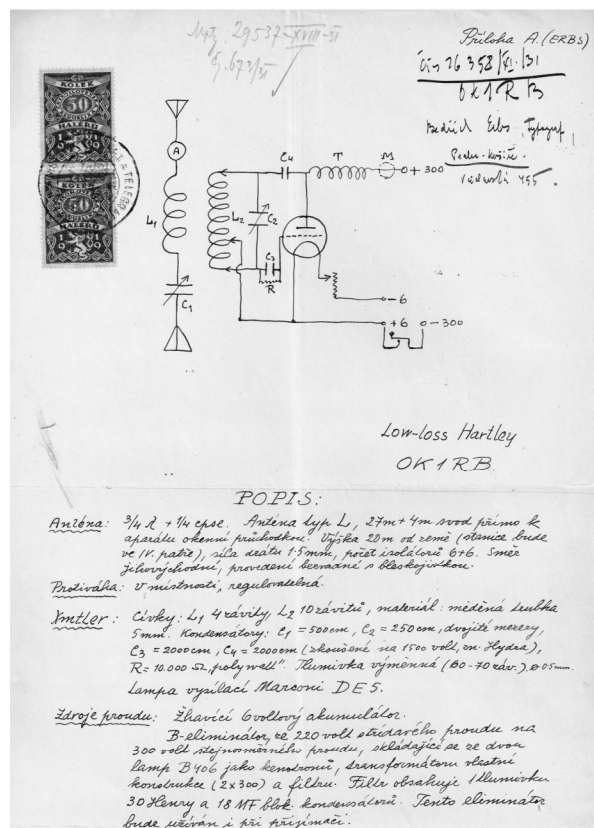 29537-XVIII-31
Č. 673/31
Příloha A. (ERBS)
Čís 26 358/XI./31
OK1RB
Bedřich Erbs,
455.
KOLEK
50
HALÉŘŮ
1919
KOLEK
50
HALÉŘŮ
1919
A
L1
C1
L2
C2
C4
T
M
+300
C3
R
-6
+6
-300
Low-loss Hartley
OK1RB.
POPIS:
Anténa: 3/4 λ + 1/4 cpse. Anténa typ L, 27m + 4m svod přímo k
aparátu okenní průchodkou. Výška 20m od země (stanice bude
ve IV. patře), síla drátu 1·5mm, počet isolátorů 6+6. Směr
jihovýchodní, provedení bezvadné s bleskojistkou.
Protiváha: v místnosti, regulovatelná.
Xmtler: Cívky: L1 4 závity, L2 10 závitů, materiál: měděná trubka
5mm. Kondensátory: C1 = 500cm, C2 = 250cm, dvojité mezery,
C3 = 2000cm, C4 = 2000cm (zkoušené na 1500 volt, zn. Hydra),
R = 10.000 Ω „polywatt". Tlumivka výměnná (60-70 záv.) ø 0·5mm.
Lampa vysílací Marconi DE5.
Zdroje proudu: Žhavící 6voltový akumulátor.
B-eliminátor, ze 220 volt střídavého proudu na
300 volt stejnosměrného proudu, skládající se ze dvou
lamp B406 jako kenotronů, transformátoru vlastní
konstrukce (2x300) a filtru. Filtr obsahuje 1 tlumivku
30 Henry a 18 MF blok. kondensátorů. Tento eliminátor
bude užíván i při přijímači.